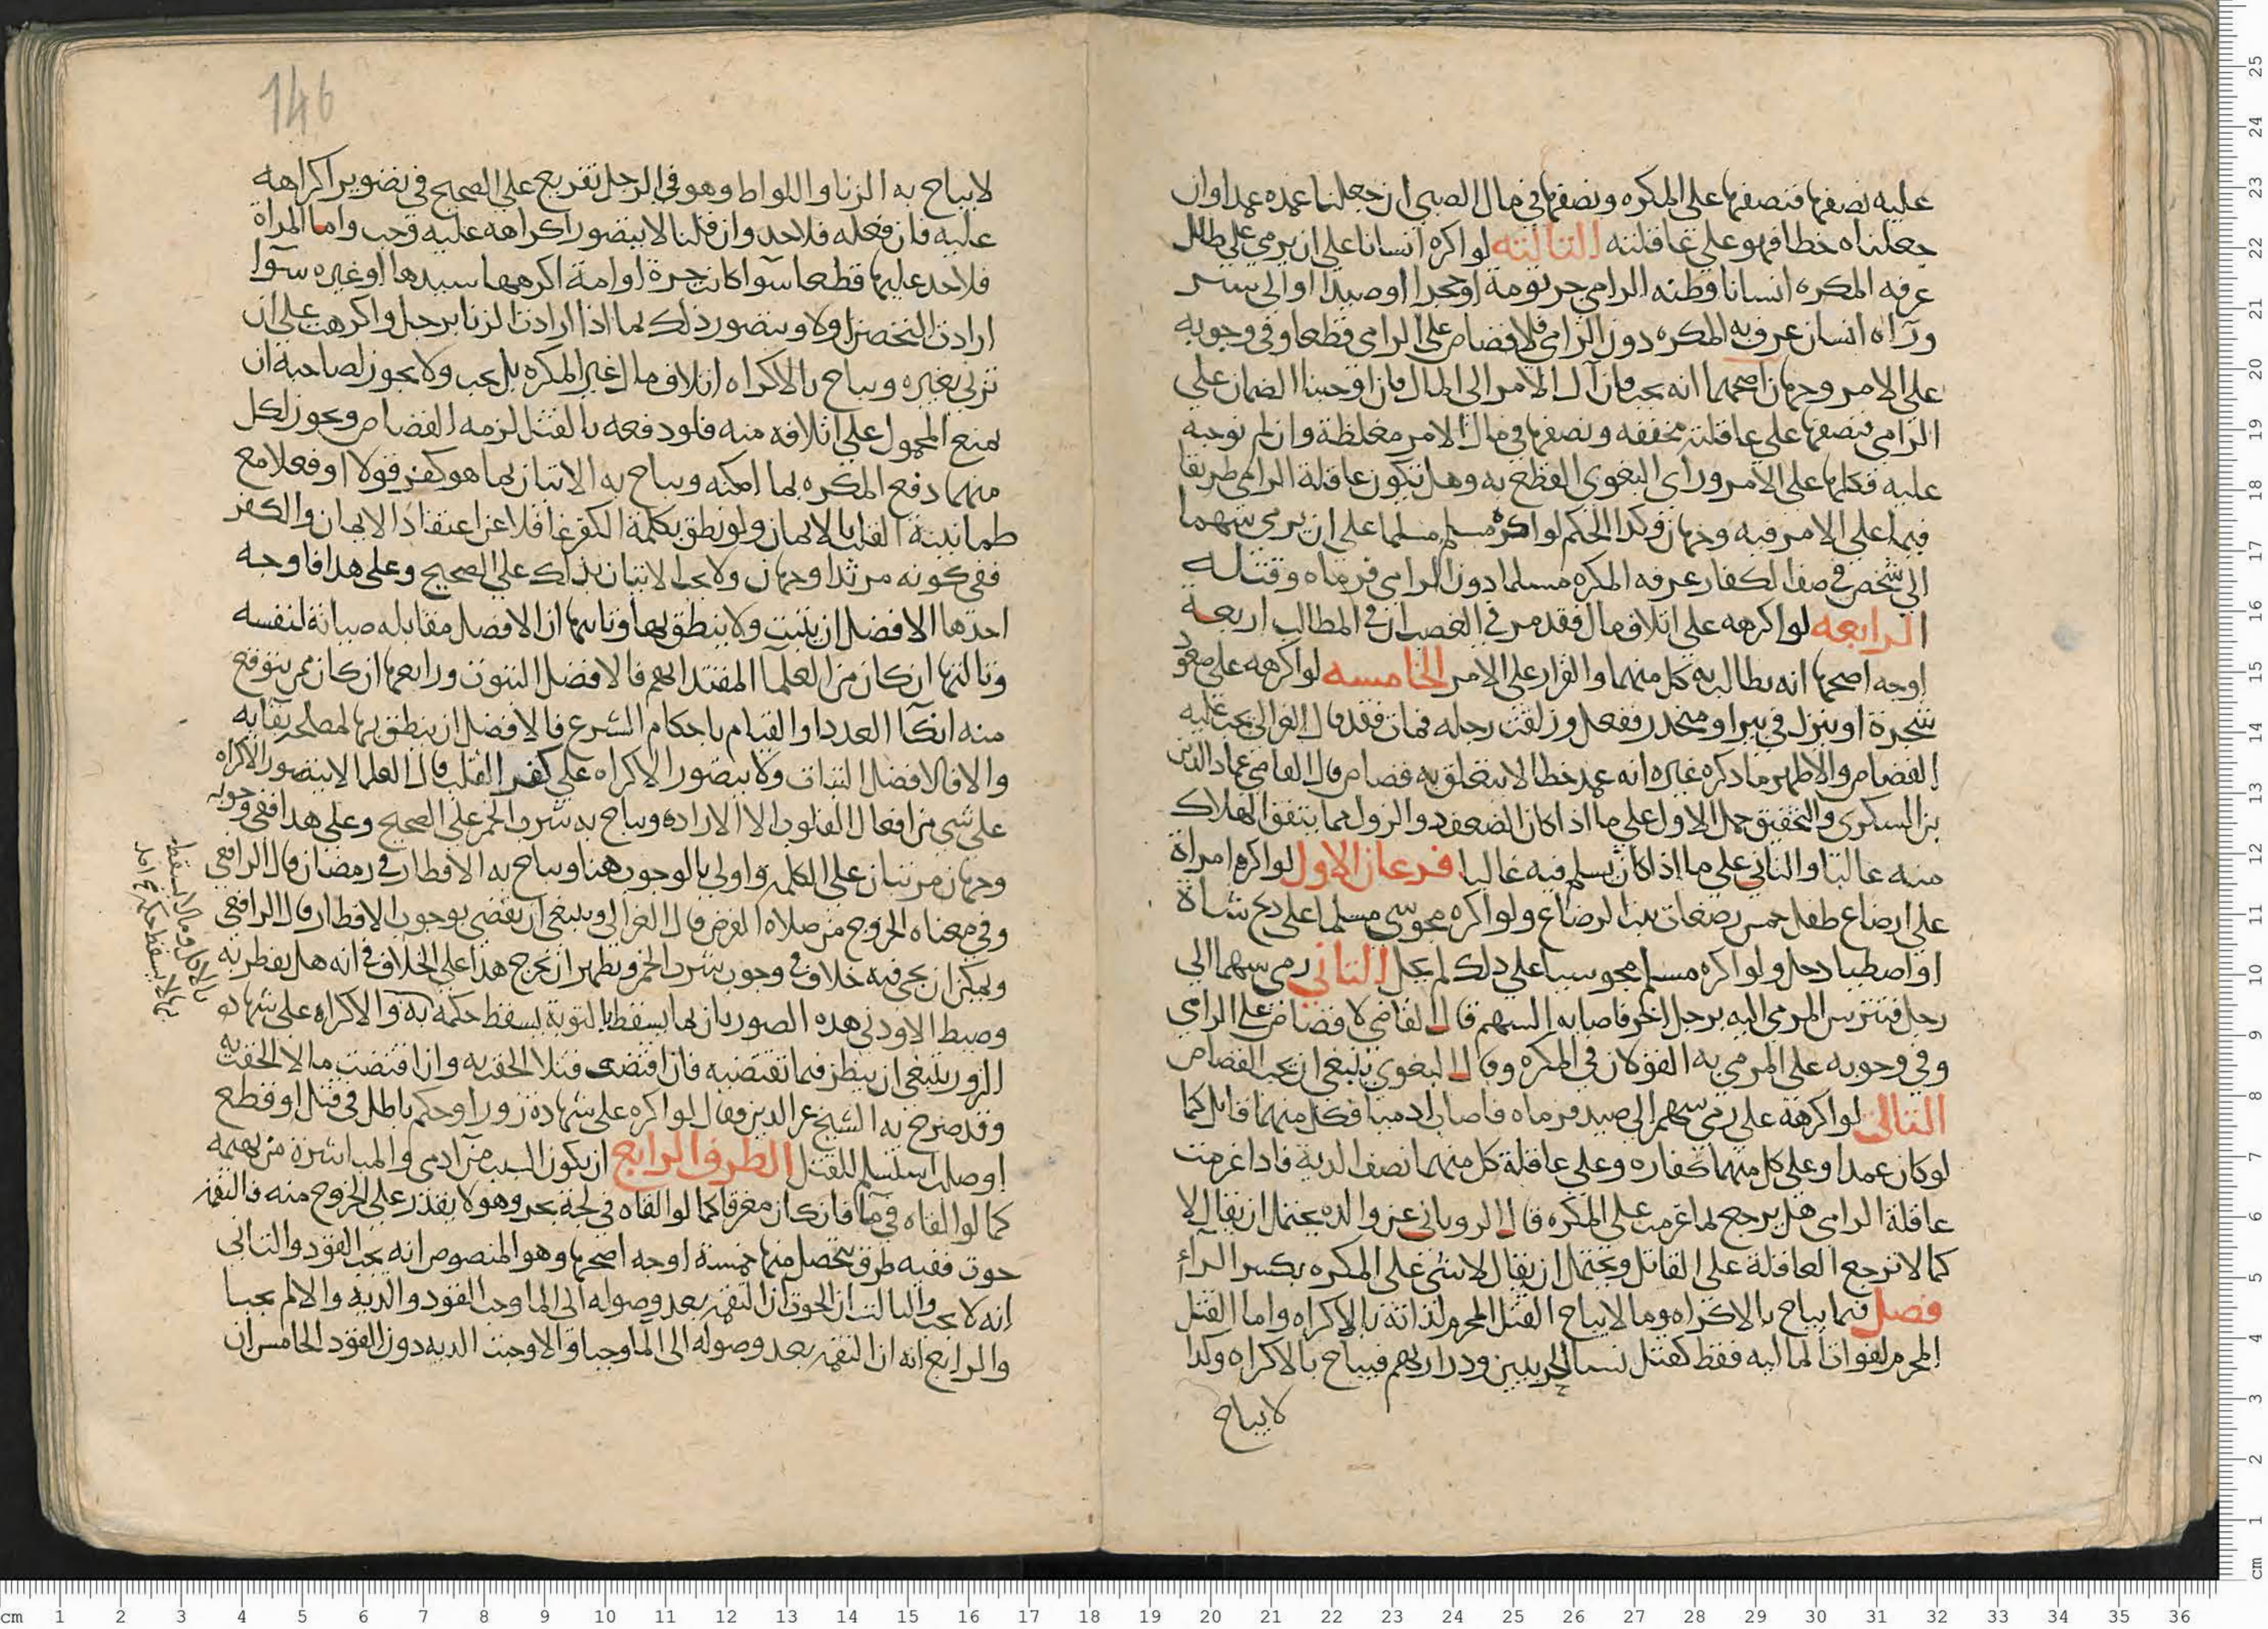 عليه نصفها فنصفها على المكره ونصفها في مال الصبي ان جعلنا عمده عمدا وان
جعلناه خطا فهو على عاقلته الثالثه لو اكره انسانا على ان يرمي على طلل
عرفه المكره انسانا وظنه الرامي جرثومة او حجرا او صيدا او الى ستر
وراه انسان عرف به المكره دون الرامي فلا قصاص على الرامي قطعا وفي وجوبه
على الامر وجهان اصحهما انه يجب فان آل الامر الى المال فان اوجبنا الضمان على
الرامي فنصفها على عاقلته مخففه ونصفها في مال الامر مغلظة وان لم نوجبه
عليه فكلها على الامر وراى البغوي القطع به وهل تكون عاقلة الرامي طريقا
فيما على الامر فيه وجهان وكذا الحكم لو اكره مسلم مسلما على ان يرمي سهما
الى شخص في صف الكفار عرفه المكره مسلما دون الرامي فرماه وقتله
الرابعه لو اكرهه على اتلاف مال فقد مر في الغصب ان في المطالب اربعة
اوجه اصحها انه يطالب به كل منهما والقرار على الامر الخامسه لو اكرهه على صعود
شجرة او ينزل في بير او منحدر ففعل وزلقت رجله فمات فقد قال الغزالي يجب عليه
القصاص والاظهر ما ذكره غيره انه عمد خطا لا يتعلق به قصاص قال القاضي عماد الدين
بن السكري والتحقيق حمل الاول على ما اذا كان الصعود والنزول مما يتفق الهلاك
منه غالبا والثاني على ما اذا كان يسلم فيه غالبا فرعان الاول لو اكره امراة
على ارضاع طفل خمس رضعات ثبت الرضاع ولو اكره مجوسي مسلما على ذبح شاة
او اصطياد حل ولو اكره مسلم مجوسيا على ذلك لم يحل الثاني رمى سهما الى
رجل فتترس المرمي اليه برجل اخر فاصابه السهم قال القاضي لا قصاص على الرامي
وفي وجوبه على المرمي به القولان في المكره وقال البغوي ينبغي ان يجب القصاص
الثالث لو اكرهه على رمي سهم الى صيد فرماه فاصاب ادميا فكل منهما قاتل كما
لو كان عمدا وعلى كل منهما كفاره وعلى عاقلة كل منهما نصف الدية فاذا غرمت
عاقلة الرامي هل يرجع لما غرمت على المكره قال الروياني عن والده يحتمل ان يقال لا
كما لا ترجع العاقلة على القاتل ويحتمل ان يقال لا شي على المكره بكسر الرآء
فصل فيما يباح بالاكراه وما لا يباح القتل المحرم لذاته بالاكراه واما القتل
المحرم لفوات الماليه فقط كقتل نسا الحربيين وذراريهم فيباح بالاكراه وكذا
لا يباح
146
لا يباح به الزنا واللواط وهو في الرجل تفريع على الصحيح في تصوير اكراهه
عليه فان فعله فلا حد وان قلنا لا يتصور اكراهه عليه وجب واما المراة
فلا حد عليها قطعا سوآ كانت حرة او امة اكرهها سيدها او غيره سوآ
ارادت التحصن او لا ويتصور ذلك بما اذا ارادت الزنا برجل واكرهت على ان
تزني بغيره ويباح بالاكراه اتلاف مال غير المكره بل يجب ولا يجوز لصاحبه ان
يمنع المحمول على اتلافه منه فلو دفعه بالقتل لزمه القصاص ويجوز لكل
منهما دفع المكره بما امكنه ويباح به الاتيان بما هو كفر قولا او فعلا مع
طمانينة القلب بالايمان ولو نطق بكلمة الكفر غافلا عن اعتقاد الايمان والكفر
ففي كونه مرتدا وجهان ولا يجب الاتيان بذلك على الصحيح وعلى هذا فاوجه
احدها الافضل ان يثبت ولا ينطق بها وثانيها ان الافضل مقابله صيانة لنفسه
وثالثها ان كان من العلمآ المقتدا بهم فالافضل الثبوت ورابعها ان كان ممن يتوقع
منه انكآ العدد او القيام باحكام الشرع فالافضل ان ينطق بها لمصلحة بقايه
والا فالافضل الثبات ولا يتصور الاكراه على كفر القلب قال العلما لا يتصور الاكراه
على شي من افعال القلوب الا الارادة ويباح به شرب الخمر على الصحيح وعلى هذا ففي وجوبه
وجهان مرتبان على الكلمة واولى بالوجوب هنا ويباح به الافطار في رمضان قال الرافعي
وفي معناه الخروج من صلاة الفرض قال الغزالي وينبغي ان يقضى بوجوب الافطار قال الرافعي
ويمكن ان يجي فيه خلاف في وجوب شرب الخمر ويظهر ان يخرج هذا على الخلاف في انه هل يفطر به
وضبط الاودني هذه الصور بان ما يسقط بالتوبة يسقط حكمه به والاكراه على شهادة
الزور ينبغي ان ينظر فيما تقتضيه فان اقتضى قتلا الحق به وان اقتضت مالا الحقت به
وقد صرح به الشيخ عز الدين فقال لو اكره على شهادة زور او حكم باطل في قتل او قطع
او صلب استسلم للقتل الطرف الرابع ان يكون السبب من آدمي والمباشرة من بهيمه
كما لو القاه في مآ فان كان مغرقا كما لو القاه في لجة بحر وهو لا يقدر على الخروج منه فالتقمه
حوت ففيه طرق يتحصل منها خمسة اوجه اصحها وهو المنصوص انه يجب القود والثاني
انه لا يجب والثالث ان الحوت ان التقمه بعد وصوله الى الما وجب القود والدية والا لم يجبا
والرابع انه ان التقمه بعد وصوله الى الما وجبا والا وجبت الديه دون القود الخامس ان
بالاكراه وما لا يسقط
بها لا يسقط حكمه